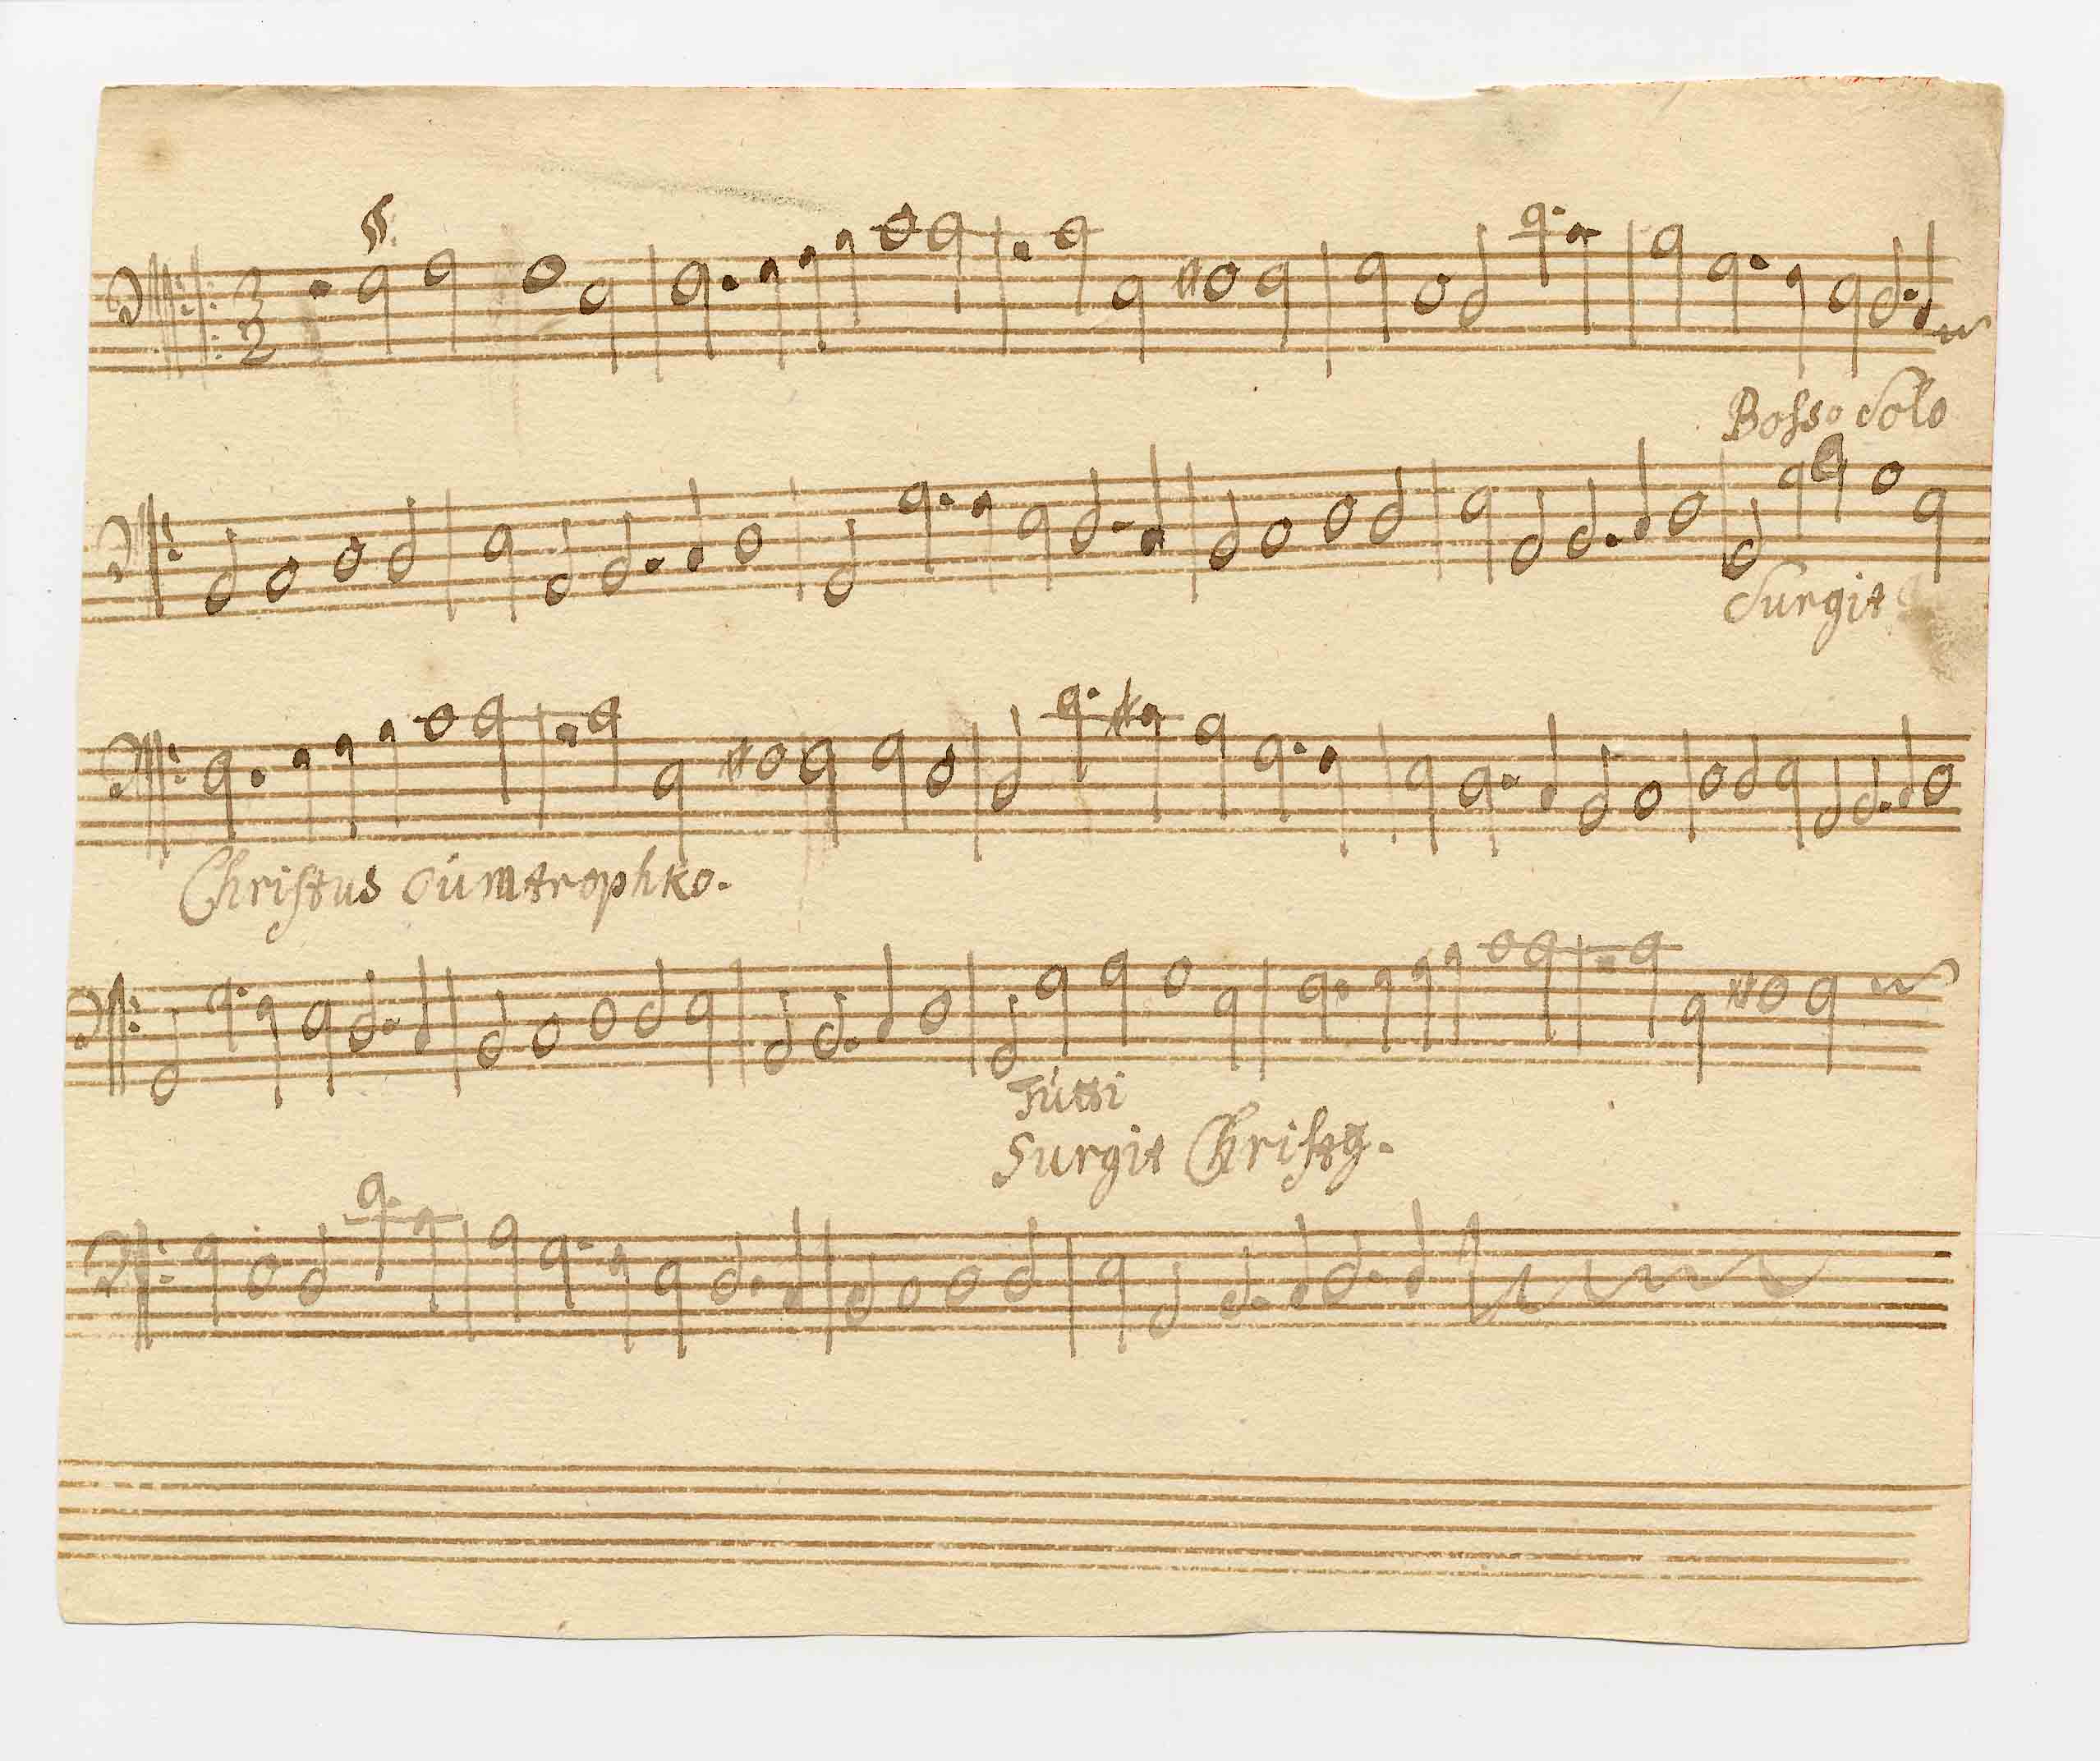 3
2
Bosso Solo
Surgit
Christus cúmtrophko.
Tútti
Surgit Christ9.